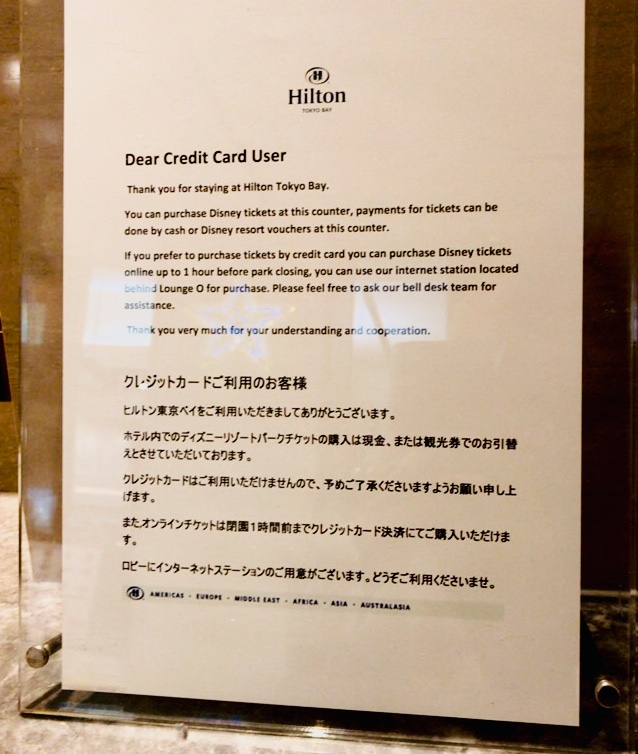 Hilton
TOKYO BAY
Dear Credit Card User
Thank you for staying at Hilton Tokyo Bay.
You can purchase Disney tickets at this counter, payments for tickets can be
done by cash or Disney resort vouchers at this counter.
If you prefer to purchase tickets by credit card you can purchase Disney tickets
online up to 1 hour before park closing, you can use our internet station located
behind Lounge O for purchase. Please feel free to ask our bell desk team for
assistance.
Thank you very much for your understanding and cooperation.
クレジットカードご利用のお客様
ヒルトン東京ベイをご利用いただきましてありがとうございます。
ホテル内でのディズニーリゾートパークチケットの購入は現金、または観光券でのお引替
えとさせていただいております。
クレジットカードはご利用いただけませんので、予めご了承くださいますようお願い申し上
げます。
また、オンラインチケットは閉園1時間前までクレジットカード決済にてご購入いただけま
す。
ロビーにインターネットステーションのご用意がございます。どうぞご利用くださいませ。
AMERICAS - EUROPE - MIDDLE EAST - AFRICA - ASIA - AUSTRALASIA